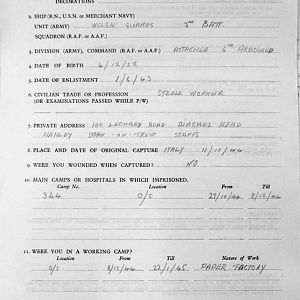 DECORATIONS
2. SHIP (R.N., U.S.N. or MERCHANT NAVY)
UNIT (ARMY) WELSH GUARDS 3rd BATT.
SQUADRON (R.A.F. or A.A.F.)
3. DIVISION (ARMY), COMMAND (R.A.F. or A.A.F.) ATTACHED 6TH ARMOURED
4. DATE OF BIRTH 4/12/22
5. DATE OF ENLISTMENT 1/2/43
6. CIVILIAN TRADE OR PROFESSION STEEL WORKER
(OR EXAMINATIONS PASSED WHILE P/W)
7. PRIVATE ADDRESS 100 ROAD HEAD
HANLEY STOKE-ON-TRENT STAFFS
8. PLACE AND DATE OF ORIGINAL CAPTURE ITALY 11/10/44
9. WERE YOU WOUNDED WHEN CAPTURED? NO
10. MAIN CAMPS OR HOSPITALS IN WHICH IMPRISONED.
Camp No. Location From To
344 O/S 23/10/44 8/12/44
11. WERE YOU IN A WORKING CAMP?
Location From To Nature of Work
O/S 8/12/44 22/1/45 PAPER FACTORY